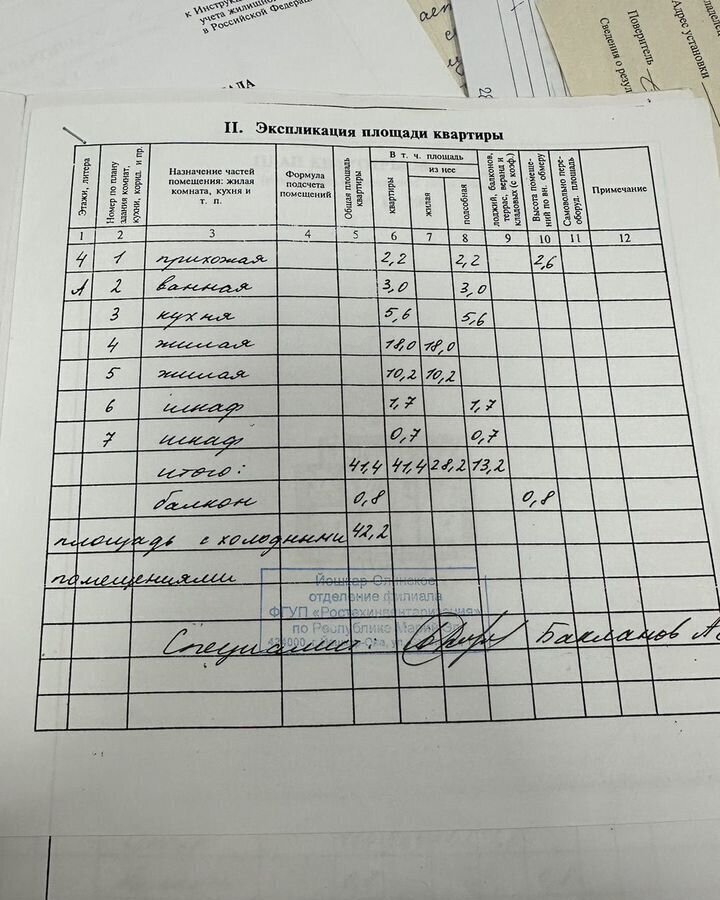 к Инструк
учета жилищно
в Российской Федера
Поверитель
Адрес установки
II. Экспликация площади квартиры
Этажи, литера
Номер по плану здания комнат, кухни, корид. и пр.
Назначение частей помещения: жилая комната, кухня и т. п.
Формула подсчета помещений
Общая площадь квартиры
В т. ч. площадь
квартиры
из нее
жилая
подсобная
лоджий, балконов, террас, веранд и кладовых (с коэф.)
Высота помещений по вн. обмеру
Самовольно переоборуд. площадь
Примечание
1 2 3 4 5 6 7 8 9 10 11 12
4 1 прихожая 2,2 2,2 2,6
А 2 ванная 3,0 3,0
3 кухня 5,6 5,6
4 жилая 18,0 18,0
5 жилая 10,2 10,2
6 шкаф 1,7 1,7
7 шкаф 0,7 0,7
итого: 41,4 41,4 28,2 13,2
балкон 0,8 0,8
площадь с холодными 42,2
помещениями
Йошкар-Олинское
отделение филиала
ФГУП «Ростехинвентаризация»
по Республике Марий Эл
Специалист: Бакланов А